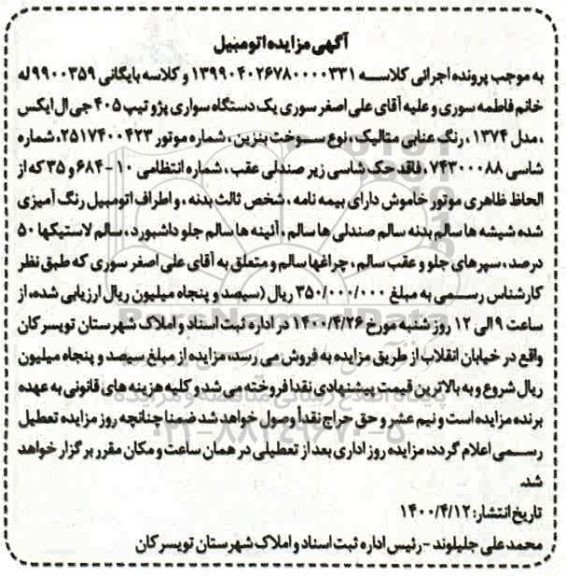 آگهی مزایده اتومبیل
به موجب پرونده اجرائی کلاسه ۱۳۹۹۰۴۰۲۶۷۸۰۰۰۰۳۳۱ و کلاسه بایگانی ۹۹۰۰۳۵۹ له
خانم فاطمه سوری و علیه آقای علی اصغر سوری یک دستگاه سواری پژو تیپ ۴۰۵ جی ال ایکس
، مدل ۱۳۷۴ ، رنگ عنابی متالیک ، نوع سوخت بنزین ، شماره موتور ۲۵۱۷۴۰۰۴۲۳، شماره
شاسی ۷۴۳۰۰۰۸۸ ، فاقد حک شاسی زیر صندلی عقب ، شماره انتظامی ۱۰ - ۶۸۴ و ۳۵ که از
الحاظ ظاهری موتور خاموش دارای بیمه نامه ، شخص ثالث بدنه ، و اطراف اتومبیل رنگ آمیزی
شده شیشه ها سالم بدنه سالم صندلی ها سالم ، آئینه ها سالم جلو داشبورد ، سالم لاستیکها ۵۰
درصد ، سپرهای جلو و عقب سالم ، چراغها سالم و متعلق به آقای علی اصغر سوری که طبق نظر
کارشناس رسمی به مبلغ ۳۵۰/۰۰۰/۰۰۰ ریال (سیصد و پنجاه میلیون ریال ارزیابی شده، از
ساعت ۹ الی ۱۲ روز شنبه مورخ ۱۴۰۰/۴/۲۶ در اداره ثبت اسناد و املاک شهرستان تویسرکان
واقع در خیابان انقلاب از طریق مزایده به فروش می رسد، مزایده از مبلغ سیصد و پنجاه میلیون
ریال شروع و به بالاترین قیمت پیشنهادی نقدا فروخته می شد و کلیه هزینه های قانونی به عهده
برنده مزایده است و نیم عشر و حق حراج نقداً وصول خواهد شد ضمنا چنانچه روز مزایده تعطیل
رسمی اعلام گردد، مزایده روز اداری بعد از تعطیلی در همان ساعت و مکان مقرر برگزار خواهد
شد.
تاریخ انتشار: ۱۴۰۰/۴/۱۲
محمدعلی جلیلوند - رئیس اداره ثبت اسناد و املاک شهرستان تویسرکان
ParsNamadData